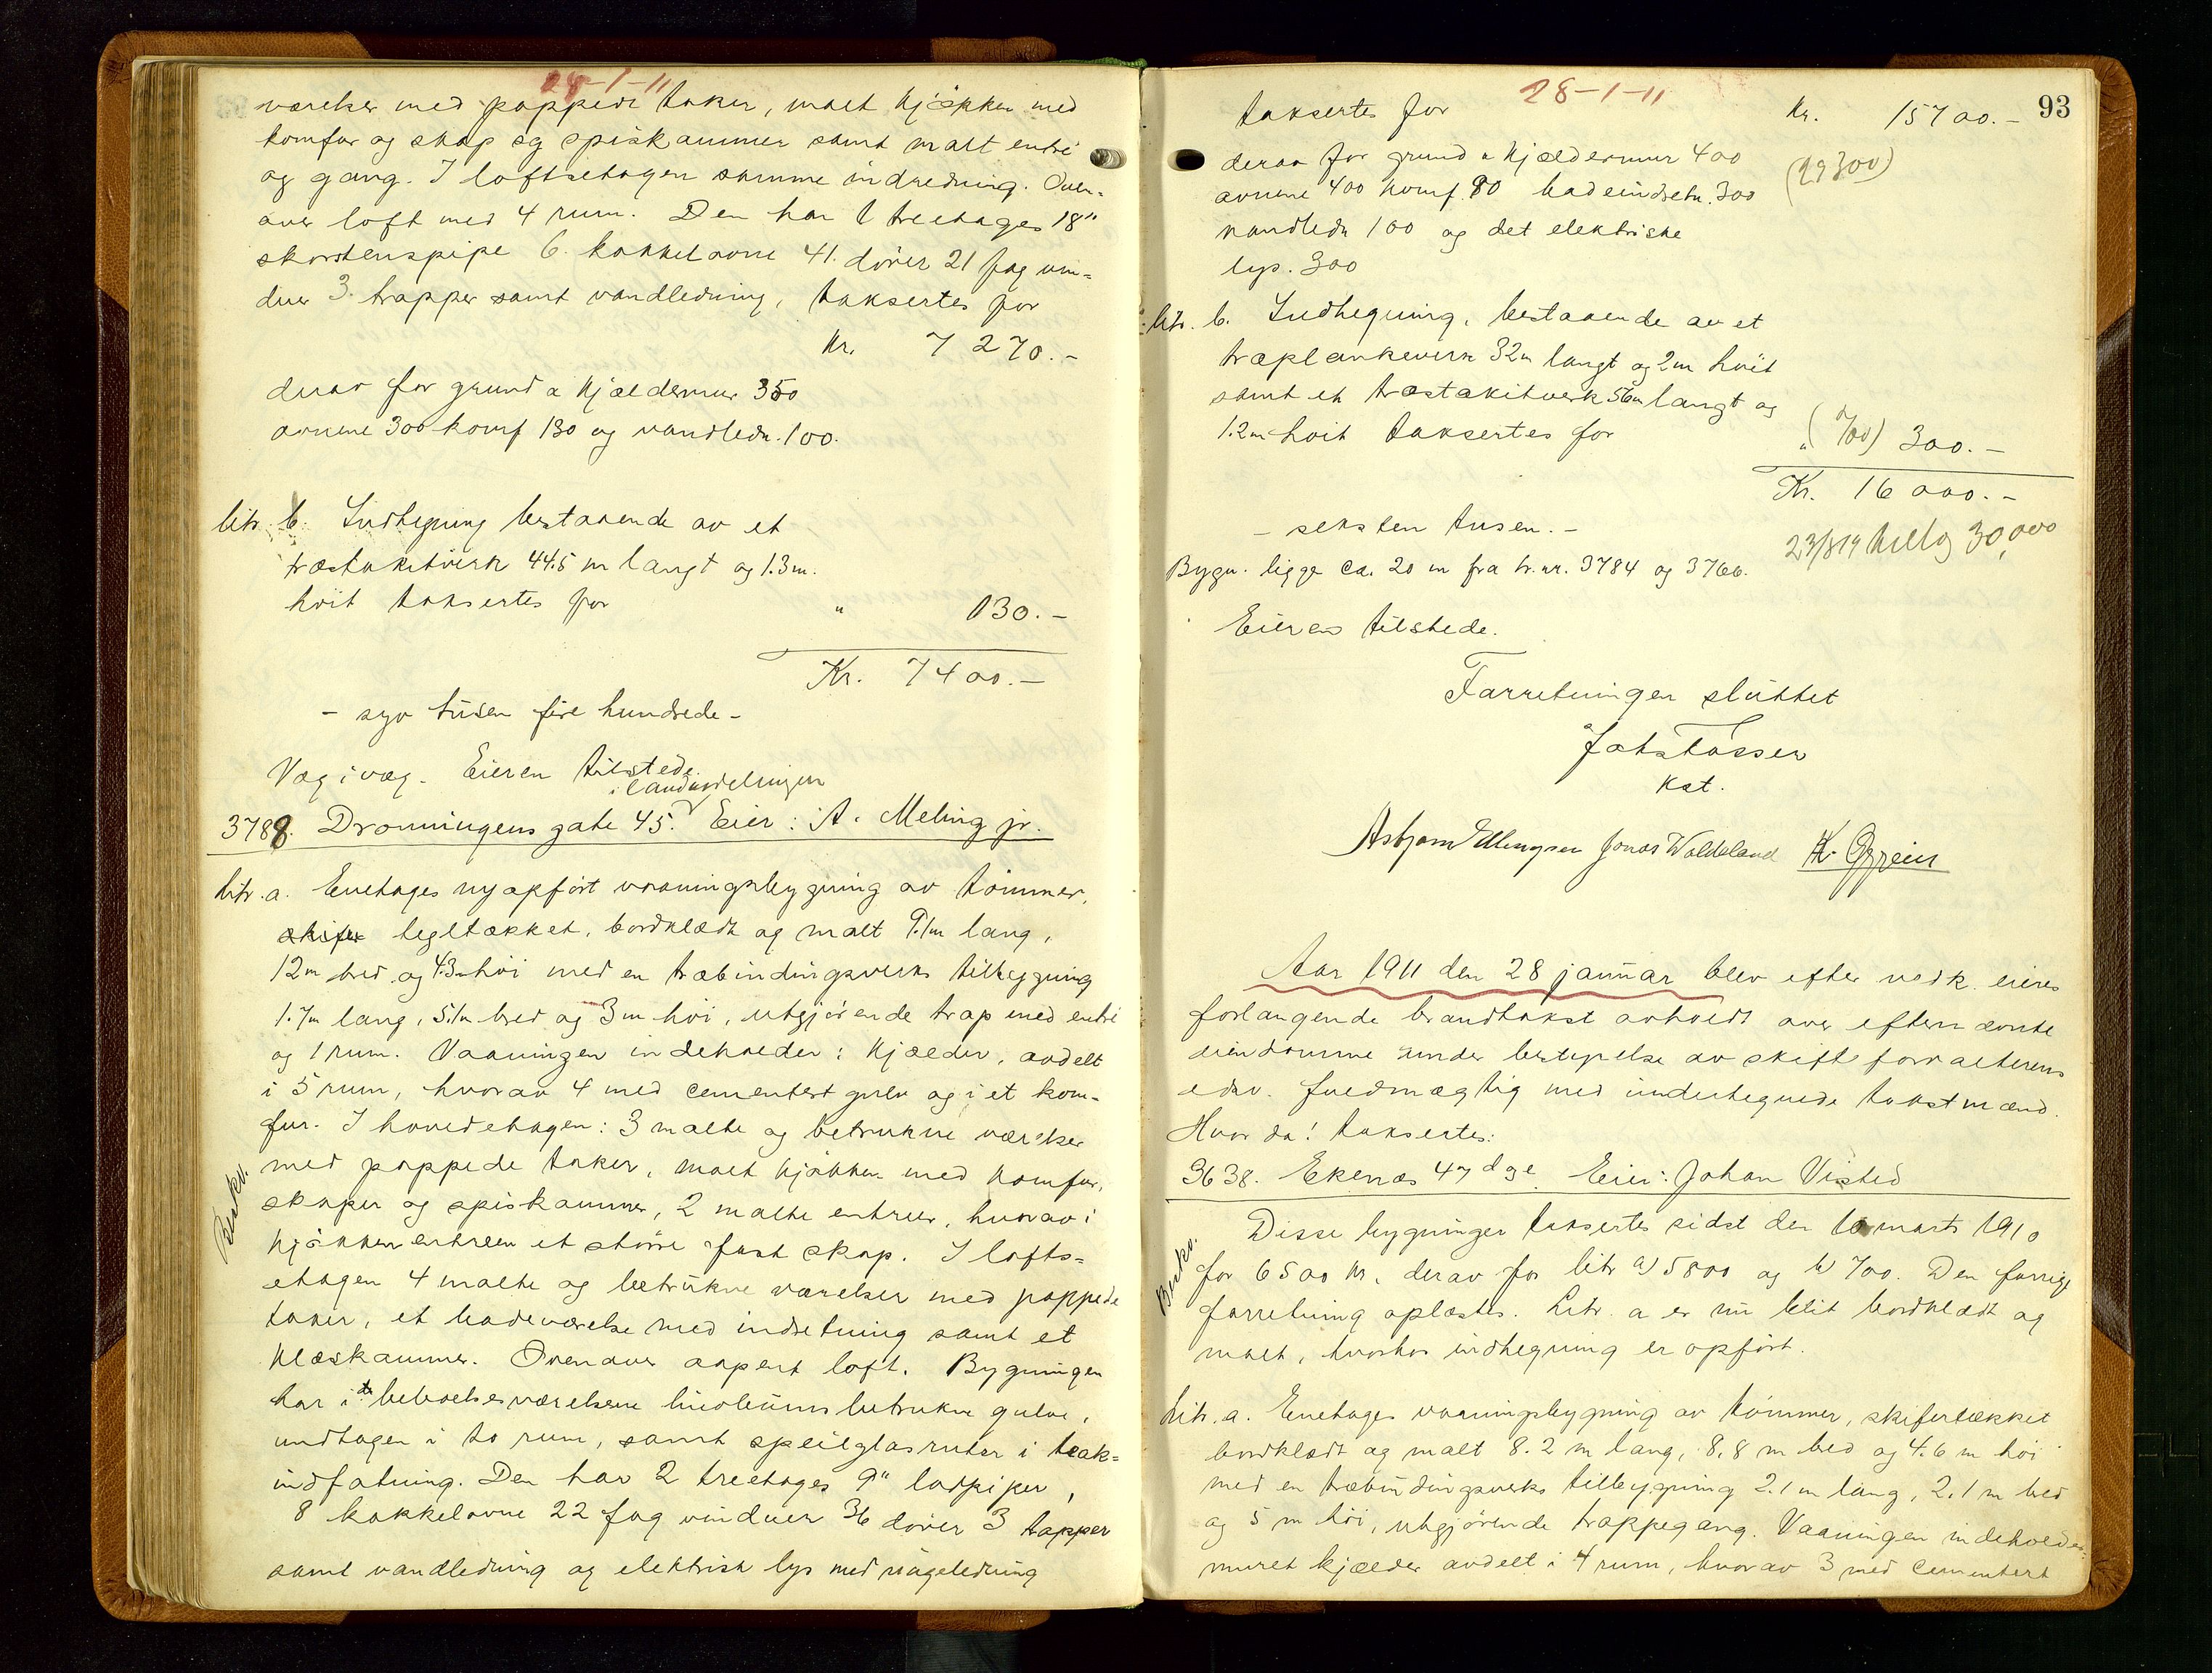 28-1-11
værelser med poppede taker, malt kjøkken med
komfur og skap og spiskammer samt malt entré
og gang. I loftsetagen samme indredning. Oven-
over loft med 4 rum. Den har 1 treetages 18"
skorstenspipe 6 kakkelovne 41 dører 21 fag vin-
duer 3 trapper samt vandledning, taksertes for
Kr. 7 270.-
derav for grund a kjældermur 350
ovnene 300 komf 130 og vandledn. 100.
litr. b. Indhegning bestaaende av et
træstakitverk 44.5 m langt og 1.3 m.
høit taksertes for " 130.-
Kr. 7400.-
- syv tusen fire hundrede -
Væg i væg. Eieren tilstede.
i landavdelingen
3788. Dronningens gate 45. Eier: A. Meling jr.
litr. a. Enetages nyopført vaaningsbygning av tømmer,
skifer teglt​ækket, bordklædt og malt 9.1m lang,
12m bred og 4.3m høi med en træbindingsverks tilbygning
1.7m lang, 5.1m bred og 3m høi, utgjørende trap med entré
og 1 rum. Vaaningen indeholder: kjælder, avdelt
i 5 rum, hvorav 4 med cementert gulv og i et kom-
fur. I hovedetagen: 3 malte og betrukne værelser
med poppede taker, malt kjøkken med komfur,
skaper og spiskammer, 2 malte entreer, hvorav i
kjøkkenentreen et større fast skap. I lofts-
etagen 4 malte og betrukne værelser med poppede
taker, et badeværelse med indretning samt et
klæskammer. Ovenover aapent loft. Bygningen
har i de beboelsesværelsene linoleums betrukne gulve,
undtagen i to rum, samt speilglasruter i teak-
indfatning. Den har 2 treetages 9" lodpiper,
8 kakkelovne 22 fag vinduer 36 dører 3 trapper
samt vandledning og elektrisk lys med ringeledning
Beskr.
28-1-11
93
taksertes for Kr. 15700.-
derav for grund a kjældermur 400 (29300)
ovnene 400 komf. 80 badeindretn. 300
vandledn 100 og det elektriske
lys. 300
litr. b. Indhegning, bestaaende av et
træplankeverk 32m langt og 2m høit
samt et træstakitverk 56m langt og
1.2m høit taksertes for " (700) 300.-
Kr. 16 000.-
- seksten tusen. -
23/8 19 tillæg 30,000
Bygn. ligge ca. 20 m fra br.nr. 3784 og 3766.
Eieren tilstede.
Forretningen sluttet
kst.
Asbjørn Ellingsen Jonas Waldeland
Aar 1911 den 28 januar blev efter vedk. eieres
forlangende brandtakst avholdt over efternævnte
eiendomme under bestyrelse av skifteforvalterens
edsv. fuldmægtig med undertegnede takstmænd.
Hvor da! taksertes:
3638. Ekenæs 47 dge Eier: Johan Visted
Disse bygninger taksertes sidst den 10 marts 1910
for 6500 kr. derav for litr a) 5800 og b) 700. Den forrige
forretning oplæstes. Litr. a er nu blit bordklædt og
malt, hvorhos indhegning er opført.
Beskr.
Litr. a. Enetages vaaningsbygning av tømmer, skifertækket
bordklædt og malt 8.2 m lang, 8.8 m bred og 4.6 m høi
med en træbindingsverks tilbygning 2.1 m lang, 2.1 m bred
og 5 m høi, utgjørende trappegang. Vaaningen indeholder:
muret kjælder avdelt i 4 rum, hvorav 3 med cementert